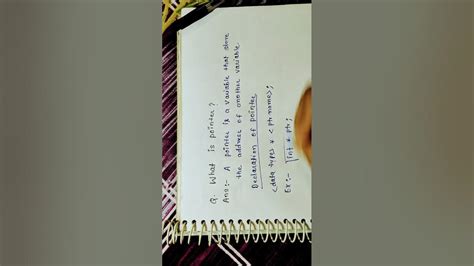 Q. What is pointer?
Ans:- A pointer is a variable that store
the address of another variable
Declaration of pointer
<data type> * <ptr name>;
Ex:- int * ptr;